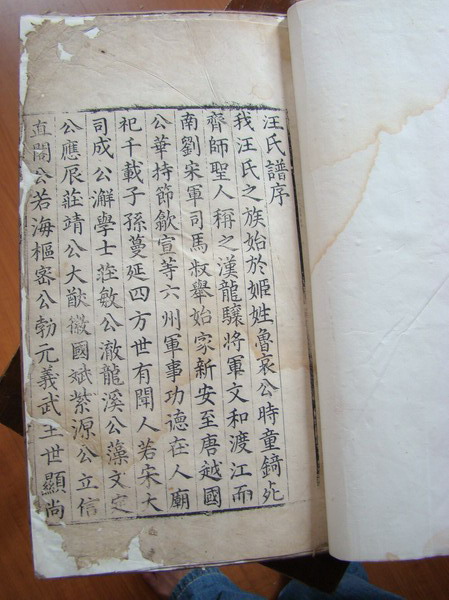 汪氏譜序
我汪氏之族始於姬姓魯哀公時童錡死
齊師聖人稱之漢龍驤將軍文和渡江而
南劉宋軍司馬叔舉始家新安至唐越國
公華持節歙宣等六州軍事功德在人廟
祀千載子孫蔓延四方世有聞人若宋大
司成公澥學士莊敏公澈龍溪公藻文定
公應辰莊靖公大猷徽國斌紫源公立信
直閣公若海樞密公勃元義武王世顯尚